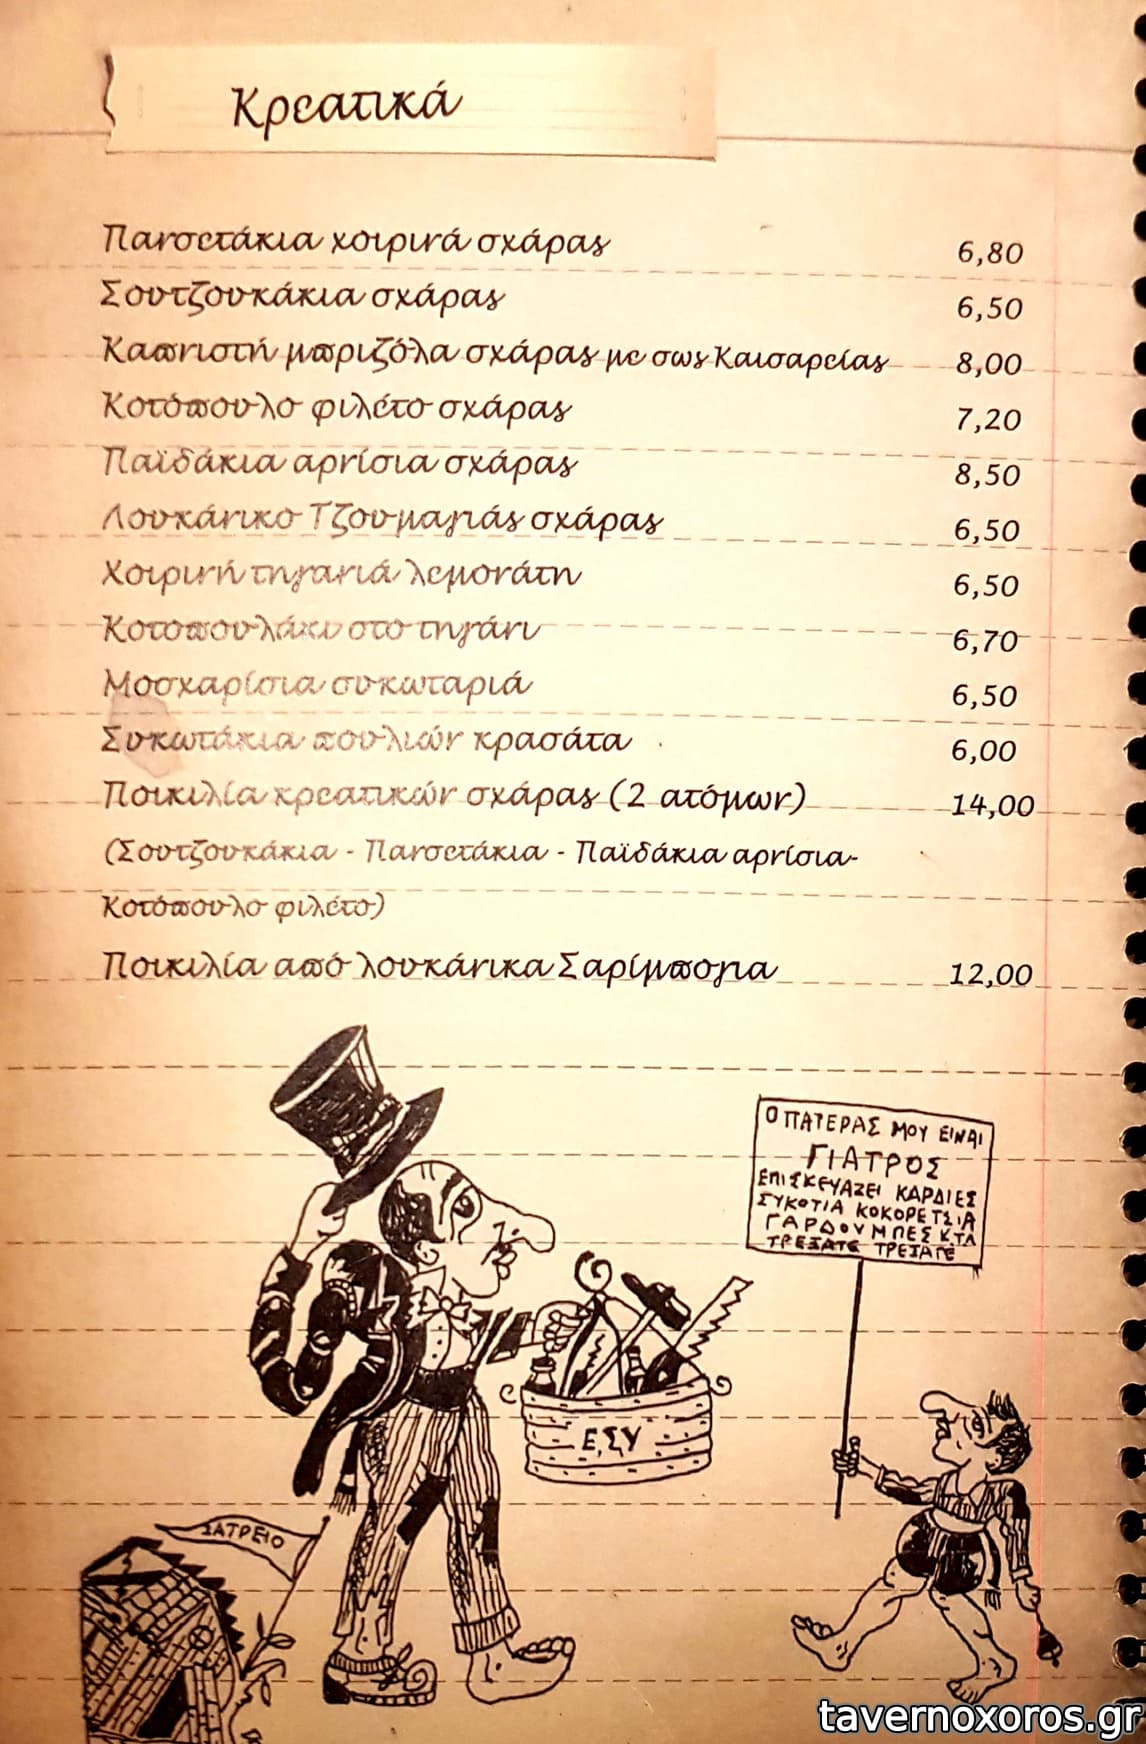 Κρεατικά
Πανσετάκια χοιρινά σχάρας 6,80
Σουτζουκάκια σχάρας 6,50
Καπνιστή μπριζόλα σχάρας με σως Καισαρείας 8,00
Κοτόπουλο φιλέτο σχάρας 7,20
Παϊδάκια αρνίσια σχάρας 8,50
Λουκάνικο Τζουμαγιάς σχάρας 6,50
Χοιρινή τηγανιά λεμονάτη 6,50
Κοτοπουλάκι στο τηγάνι 6,70
Μοσχαρίσια συκωταριά 6,50
Συκωτάκια πουλιών κρασάτα 6,00
Ποικιλία κρεατικών σχάρας (2 ατόμων) 14,00
(Σουτζουκάκια - Πανσετάκια - Παϊδάκια αρνίσια-
Κοτόπουλο φιλέτο)
Ποικιλία από λουκάνικα Σαρίμπογια 12,00
Ο ΠΑΤΕΡΑΣ ΜΟΥ ΕΙΝΑΙ
ΓΙΑΤΡΟΣ
ΕΠΙΣΚΕΥΑΖΕΙ ΚΑΡΔΙΕΣ
ΣΥΚΟΤΙΑ ΚΟΚΟΡΕΤΣΙΑ
ΓΑΡΔΟΥΜΠΕΣ Κ.ΤΛ
ΤΡΕΞΑΤΕ ΤΡΕΞΑΤΕ
Ε,ΣΥ
ΙΑΤΡΕΙΟ
tavernoxoros.gr